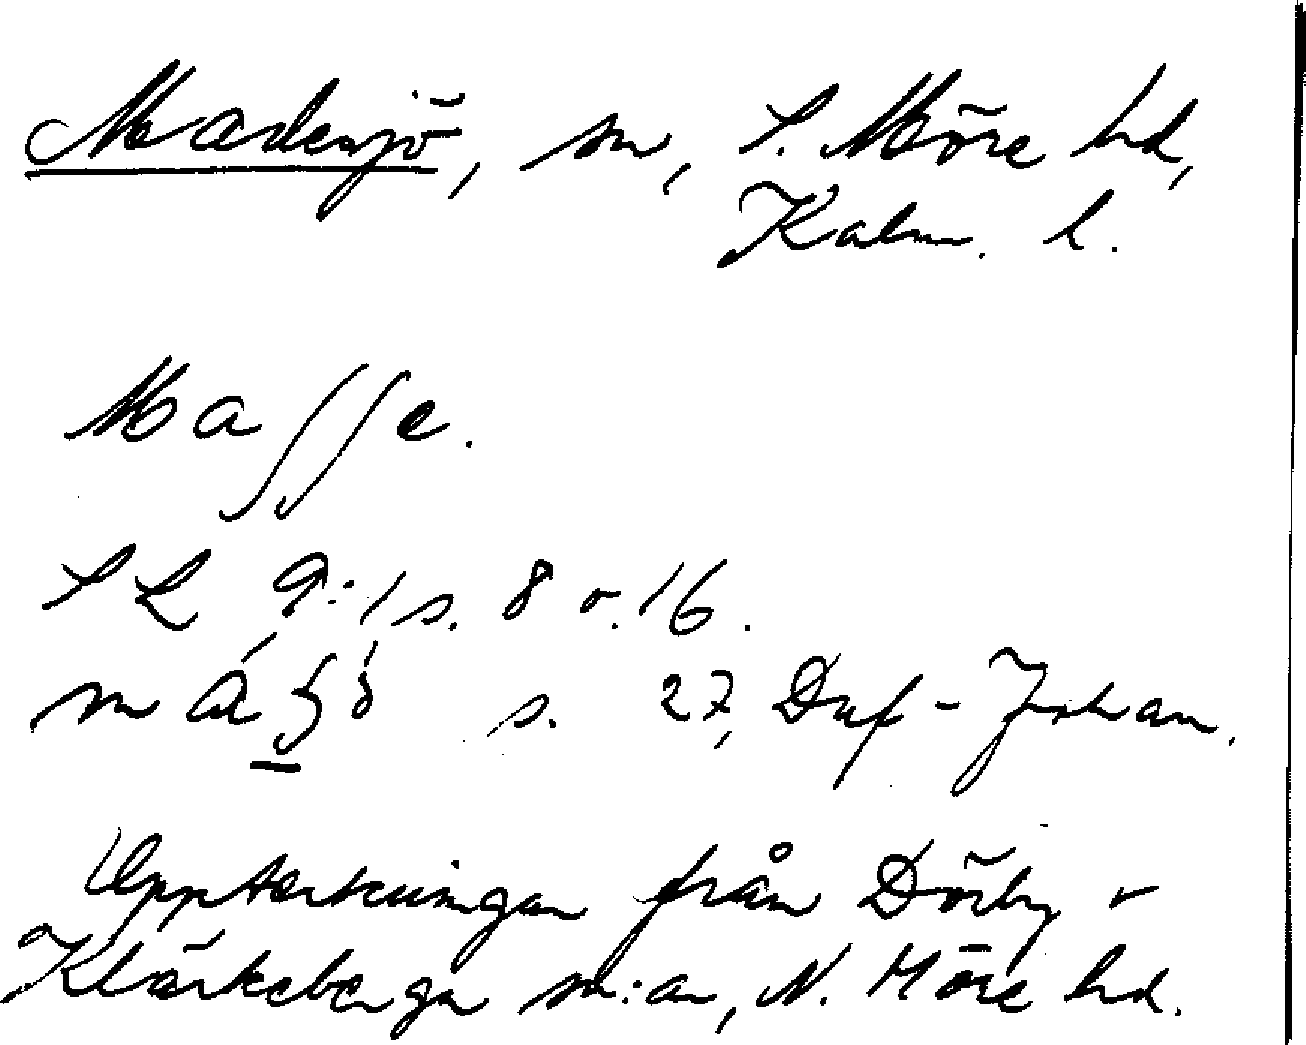 Madesjö, sn, S. Möre hd,
Kalm. l.
Maſſe.
SL 9:1 s. 8 o. 16.
s. 27, Duf-Johan.
Uppteckningar från Dörby o
Kläckeberga sn:ar, N. Möre hd.